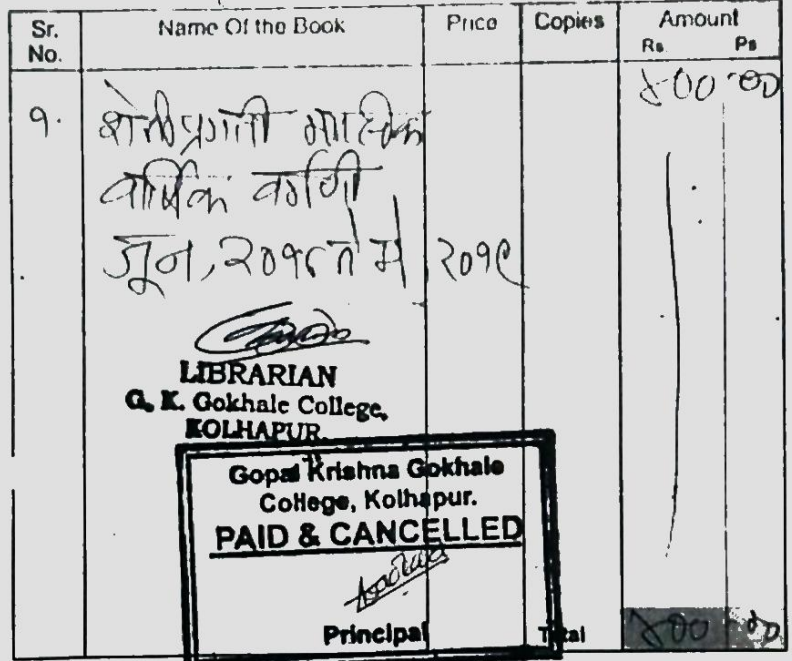 Sr. No. Name Of the Book Price Copies Amount
Rs. Ps
४00 00
१. शेतीप्रगती मासिक
वार्षिक वर्गणी
जून, २०१८ ते मे २०१९
LIBRARIAN
G. K. Gokhale College,
KOLHAPUR.
Gopal Krishna Gokhale
College, Kolhapur.
PAID & CANCELLED
Principal
Total ४00 00